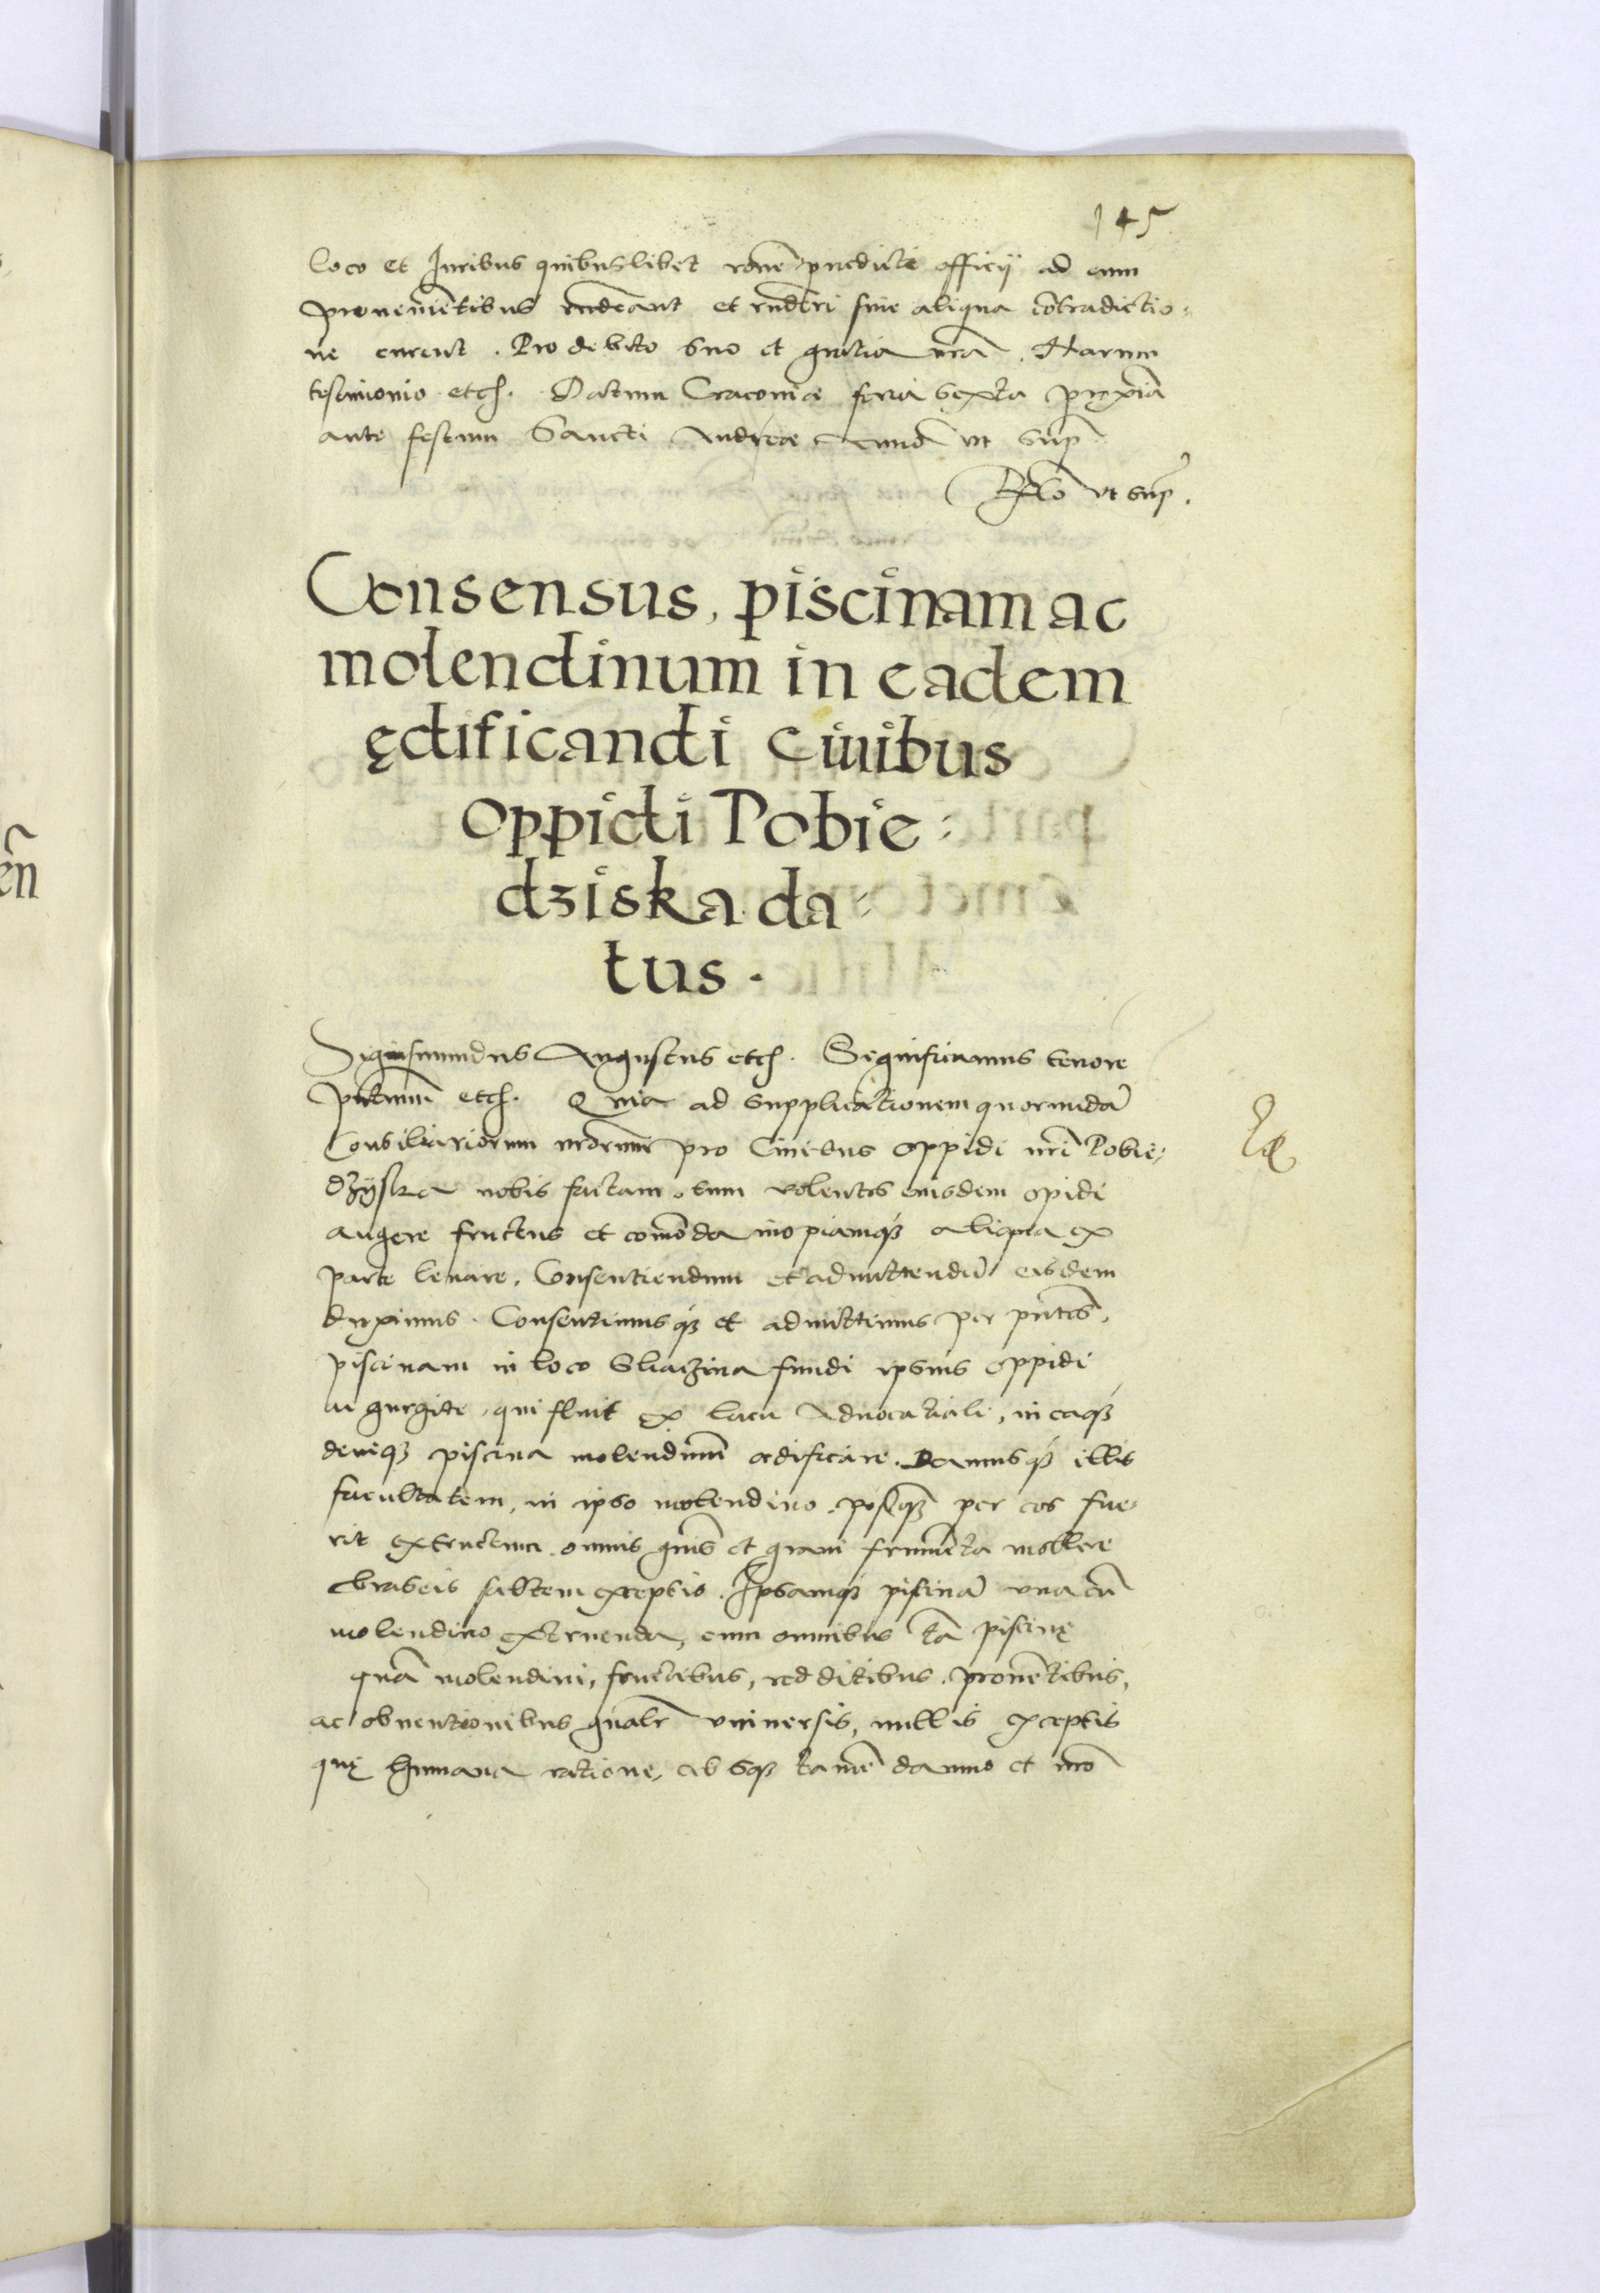 145
loco et Juribus quibuslibet rōne predicti officij ad eum
provenientibus rndeant et rnderi sine aliqua cōtradictio-
ne curent. Pro debito suo et gratia nrā. Harum
testimonio etc. Datum Cracoviæ feria sexta proximā
ante festum Sancti Andreæ Anno ut sup
Relō ut sup.
Consensus, piscinam ac
molendinum in eadem
ędificandi civibus
oppidi Pobie-
dziska da-
tus.
Sigismundus Augustus etc. Significamus tenore
pntium etc. Quia ad supplicationem quorundā
Consiliariorum nrorum pro Civibus oppidi nri Pobie-
dzyska nobis factam, tum volentes eiusdem opidi
augere fructus et comoda inopiamq3 aliqua ex
parte levare. Consentiendum et admittendū eisdem
duximus. Consentimusq3 et admittimus per pntes,
piscinam in loco fundi ipsius oppidi
in gurgite, qui fluit ex lacu Advocatiali, in eaq3
deniq3 piscina molendinū ædificare. Damusq3 illis
facultatem, in ipso molendino, postq3 per eos fue-
rit extructum, omnis gnis et grani frumenta mollere
braseis saltem exceptis. Ipsamq3 piscinā una cū
molendino extruenda, cum omnibus tā piscinę
quā molendini, fructibus, redditibus, proventibus,
ac obventionibus gnalr universis, nullis exceptis
quę humana ratione, absq3 tamē damno et nrō